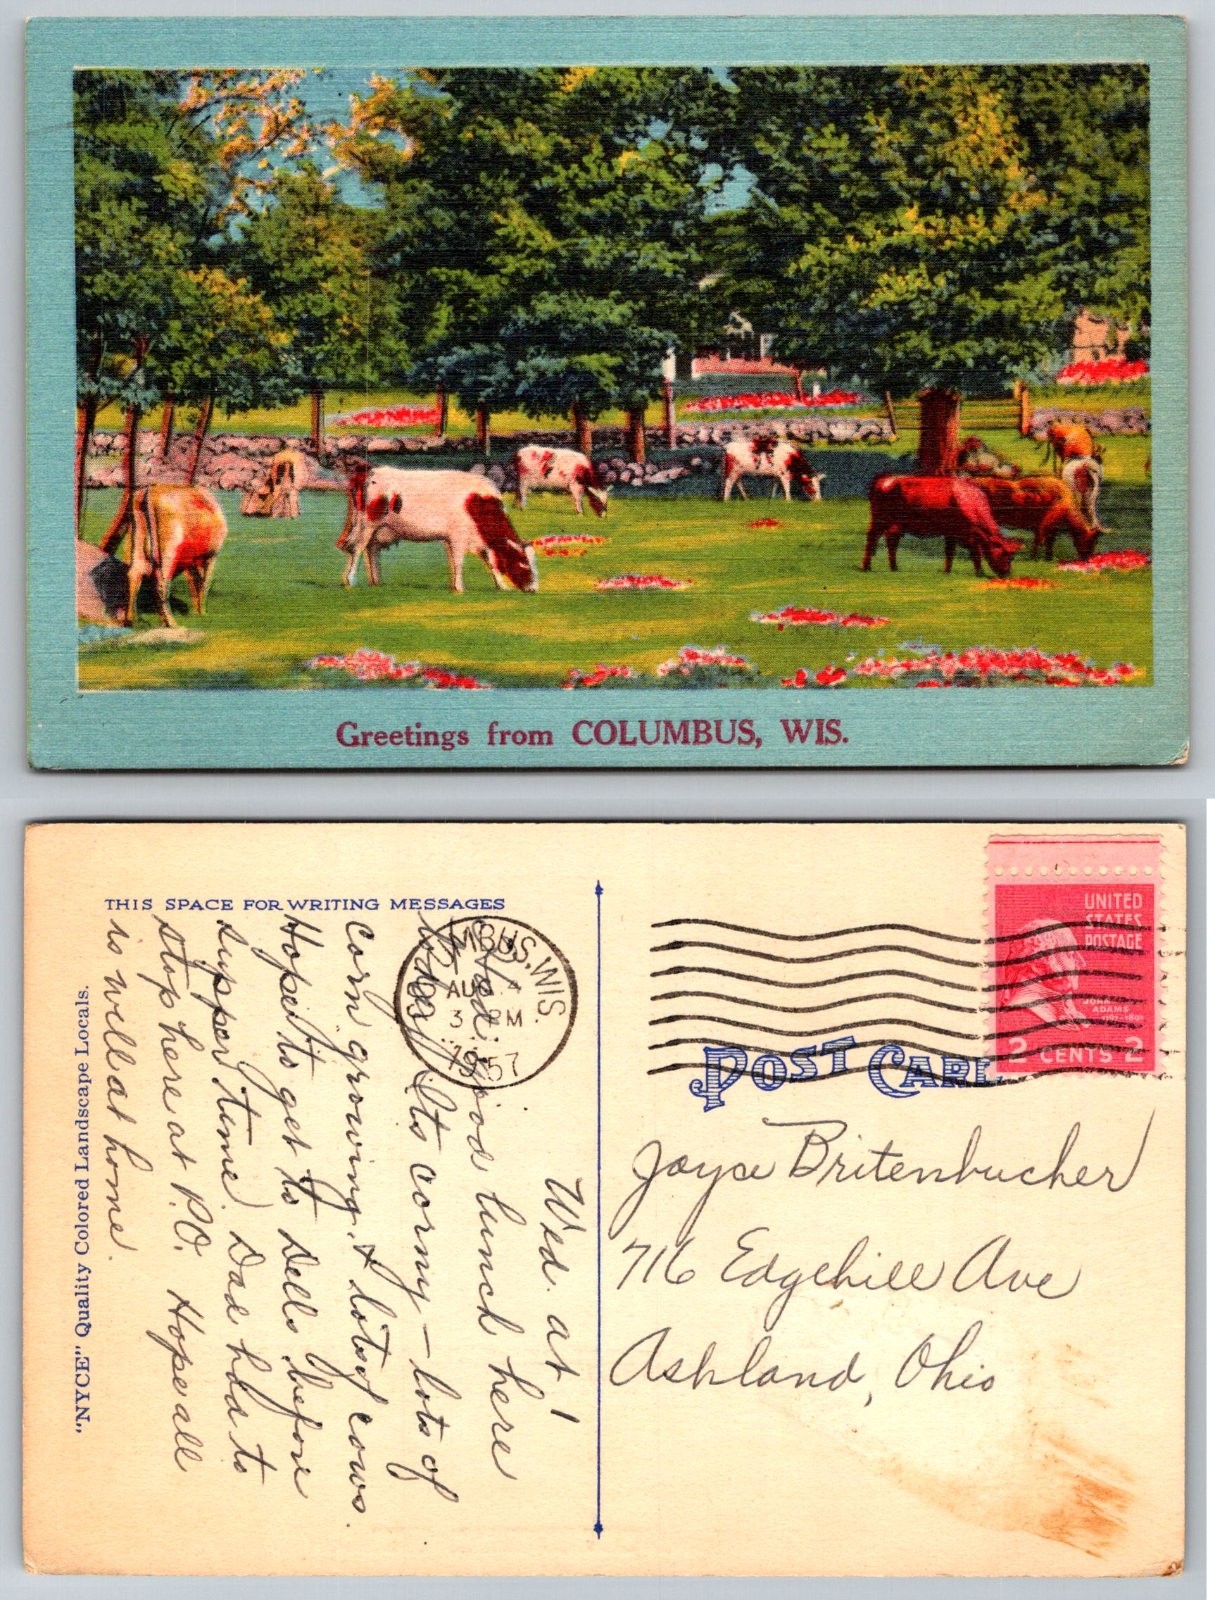 Greetings from COLUMBUS, WIS.
THIS SPACE FOR WRITING MESSAGES
"NYCE" Quality Colored Landscape Locals.
Wed. at 1
Had good lunch here
today. Its corny - lots of
corn growing, & lots of cows.
Hope to get to Dells before
supper time. Dad had to
stop here at P.O. Hope all
is well at home.
MBUS, WIS.
AUG
3 PM
1957
UNITED
STATES
POSTAGE
JOHN
ADAMS
2 CENTS 2
POST CARD
Joyce Britenbucher
716 Edgehill Ave
Ashland, Ohio